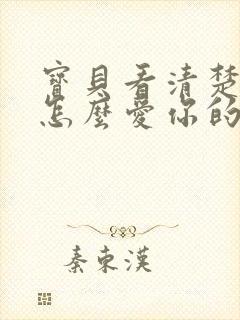 寶貝看清楚
怎麼愛你的
秦東漢